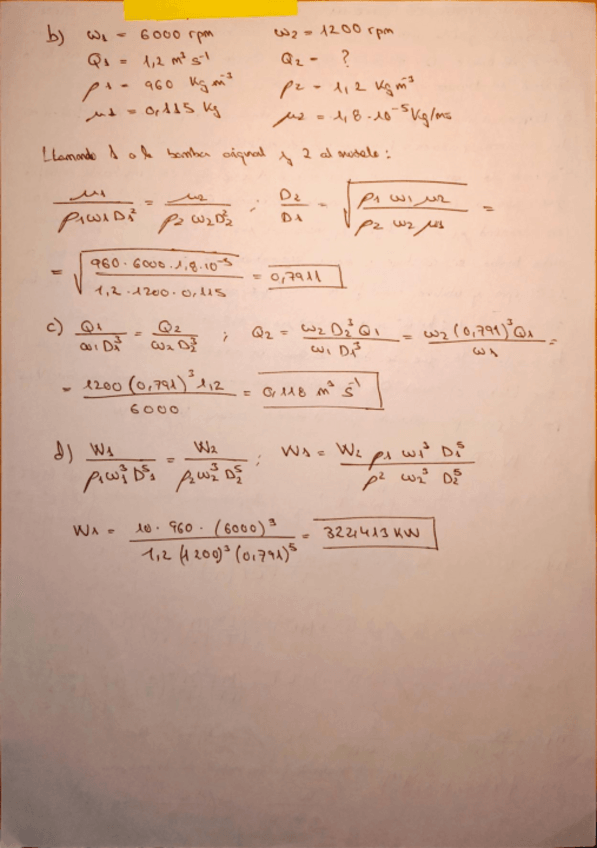 b) ω1 = 6000 rpm ω2 = 1200 rpm
Q1 = 1,2 m³ s⁻¹ Q2 = ?
ρ1 = 960 Kg m⁻³ ρ2 = 1,2 Kg m⁻³
μ1 = 0,115 Kg μ2 = 1,8·10⁻⁵ Kg/ms
Llamando 1 a la bomba original y 2 al modelo:
μ1/(ρ1ω1D1²) = μ2/(ρ2ω2D2²) ; D2/D1 = √(ρ1 ω1 μ2/(ρ2 ω2 μ1)) =
= √(960·6000·1,8·10⁻⁵/(1,2·1200·0,115)) = 0,7911
c) Q1/(ω1D1³) = Q2/(ω2D2³) ; Q2 = ω2 D2³ Q1/(ω1 D1³) = ω2(0,791)³Q1/ω1 =
= 1200(0,791)³1,2/6000 = 0,118 m³ s⁻¹
d) W1/(ρ1ω1³D1⁵) = W2/(ρ2ω2³D2⁵) ; W1 = W2 ρ1 ω1³ D1⁵/(ρ2 ω2³ D2⁵)
W1 = 10·960·(6000)³/(1,2(1200)³(0,791)⁵) = 322,413 KW